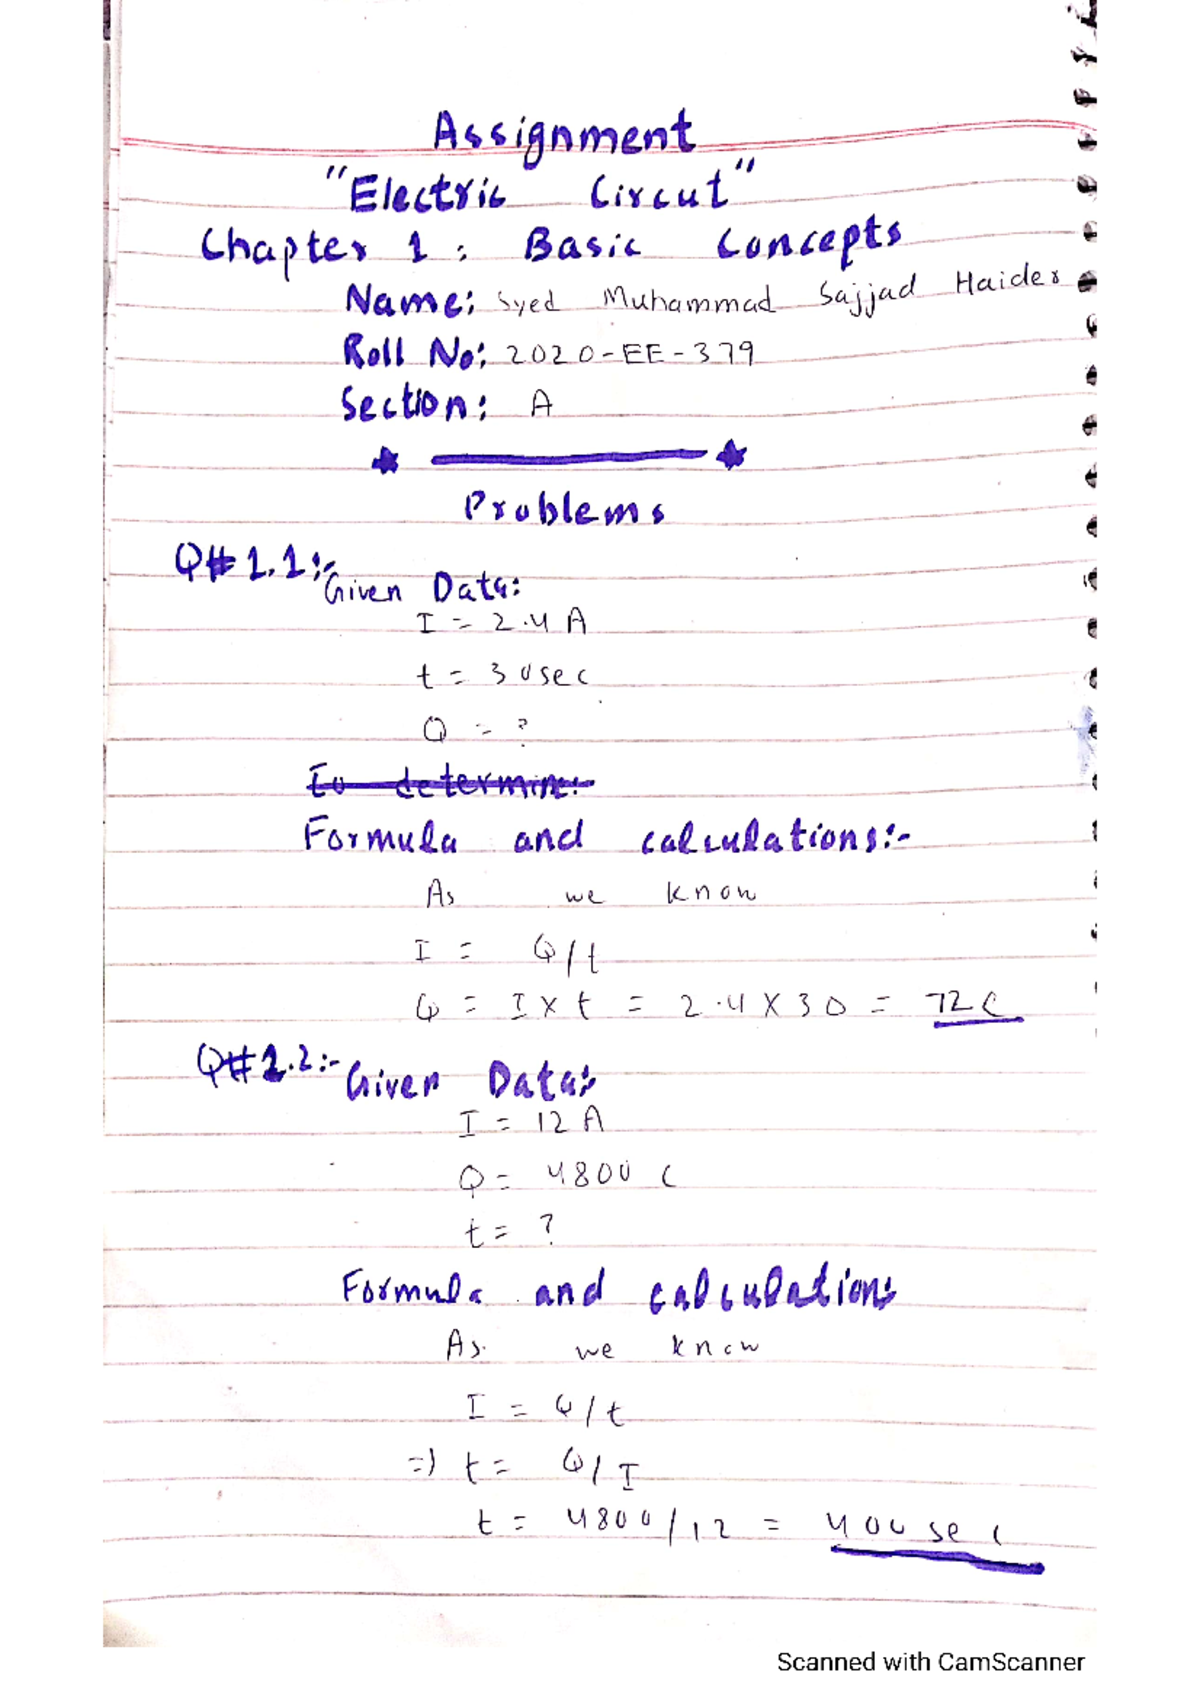 Assignment
"Electric Circut"
Chapter 1 : Basic Concepts
Name: Syed Muhammad Sajjad Haider
Roll No: 2020-EE-379
Section: A
Problems
Q# 1.1:-
Given Data:
I = 2.4 A
t = 30sec
Q = ?
To determine:-
Formula and calculations:-
As we know
I = Q/t
Q = I x t = 2.4 X 30 = 72 C
Q# 1.2:-
Given Data:
I = 12 A
Q = 4800 C
t = ?
Formula and calculations
As we know
I = Q/t
=) t = Q/I
t = 4800/12 = 400 sec
Scanned with CamScanner